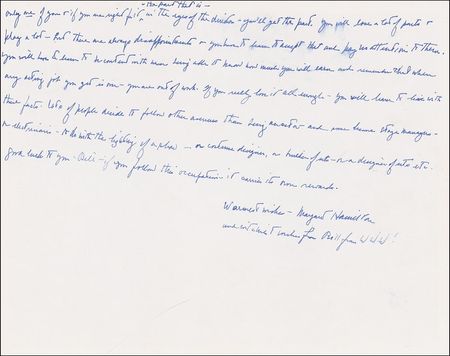 - the part that is -
only one of you & if you are right for it in the eyes of the decider - you'll get the part. You will lose a lot of parts &
play a lot - but there are always disappointments & you have to learn to accept that and pay no attention to them.
You will have to learn to be content with never being able to know how much you will earn and remember that when
any acting job you get is over - you are out of work. If you really love it all enough - you will learn to live with
these facts. Lots of people decide to follow other avenues than being an actor and some become stage managers -
or electricians - to do with the lighting of a show - or costume designer, or builder of sets - or a designer of sets etc.
Good luck to you - Bill - if you follow this occupation - it carries its own rewards.
Warmest wishes - Margaret Hamilton
and wickedest wishes from Bill from WWW!